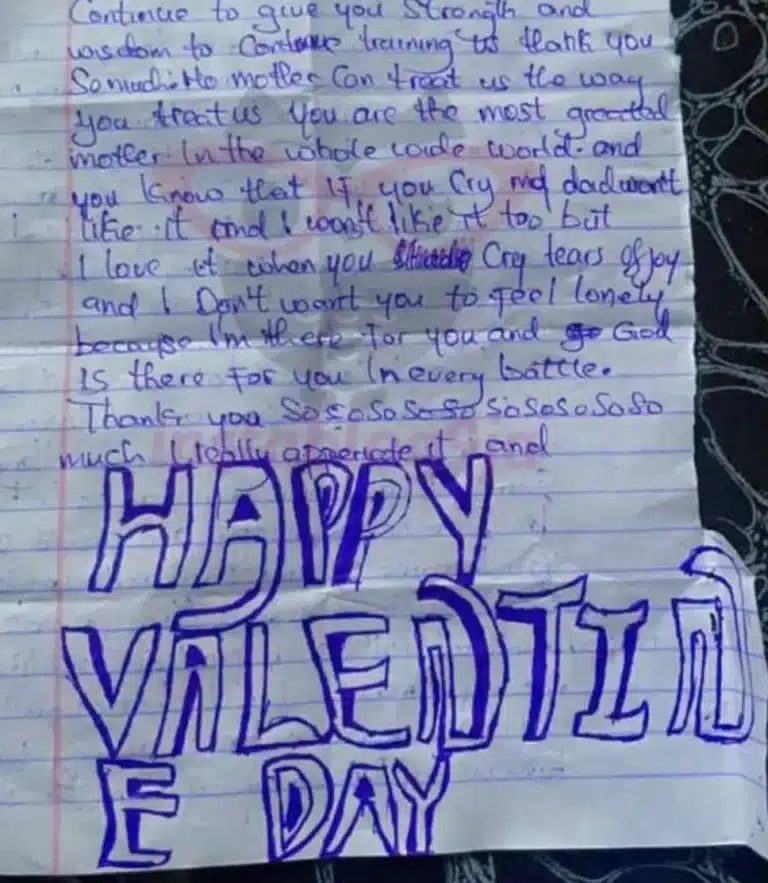 Continue to give you Strength and
wisdom to Continue training us thank you
So much. No mother Can treat us the way
you treat us You are the most greatted
mother In the whole wide world. and
you know that If you Cry my dad won't
like it and I won't like it too but
I love it when you Cry tears of joy
and I Don't want you to feel lonely
because I'm there for you and God
Is there for you In every battle.
Thank you So so So So so So So So So So
much I really apperiate it and
HAPPY
VALENTIN
E DAY